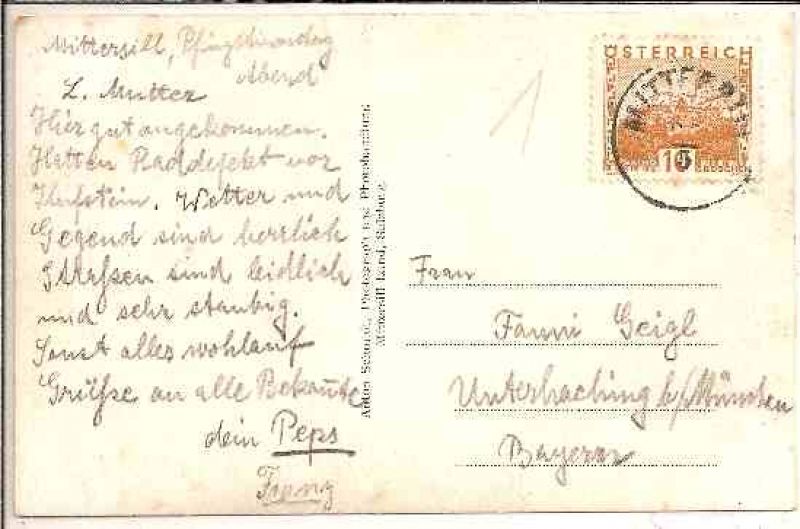 Mittersill, Pfingstmontag
Abend
L. Mutter
Hier gut angekommen.
Hatten Raddefekt vor
Kufstein. Wetter und
Gegend sind herrlich
Straßen sind leidlich
und sehr staubig.
Sonst alles wohlauf
Grüße an alle Bekannte
dein Peps
Franz
Photograph und Photohandlung
Mittersill Land, Salzburg
1
ÖSTERREICH
10
GROSCHEN
Frau
Fanni Geigl
Unterhaching b/München
Bayern